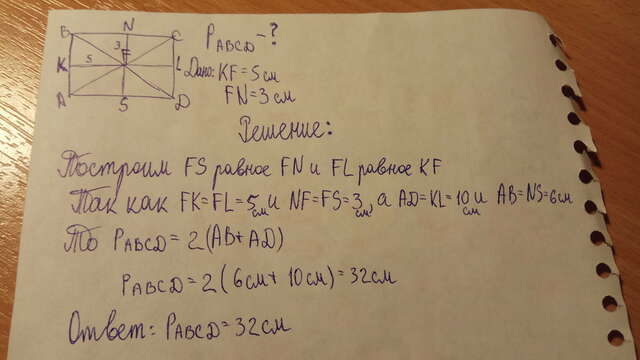 B N C
P ABCD - ?
3
F
K 5 L
Дано: KF = 5 см
FN = 3 см
A S D
Решение:
Построим FS равное FN и FL равное KF
Так как FK = FL = 5 см и NF = FS = 3 см, а AD = KL = 10 см и AB = NS = 6 см
То P ABCD = 2 (AB + AD)
P ABCD = 2 ( 6 см + 10 см ) = 32 см
Ответ: P ABCD = 32 см